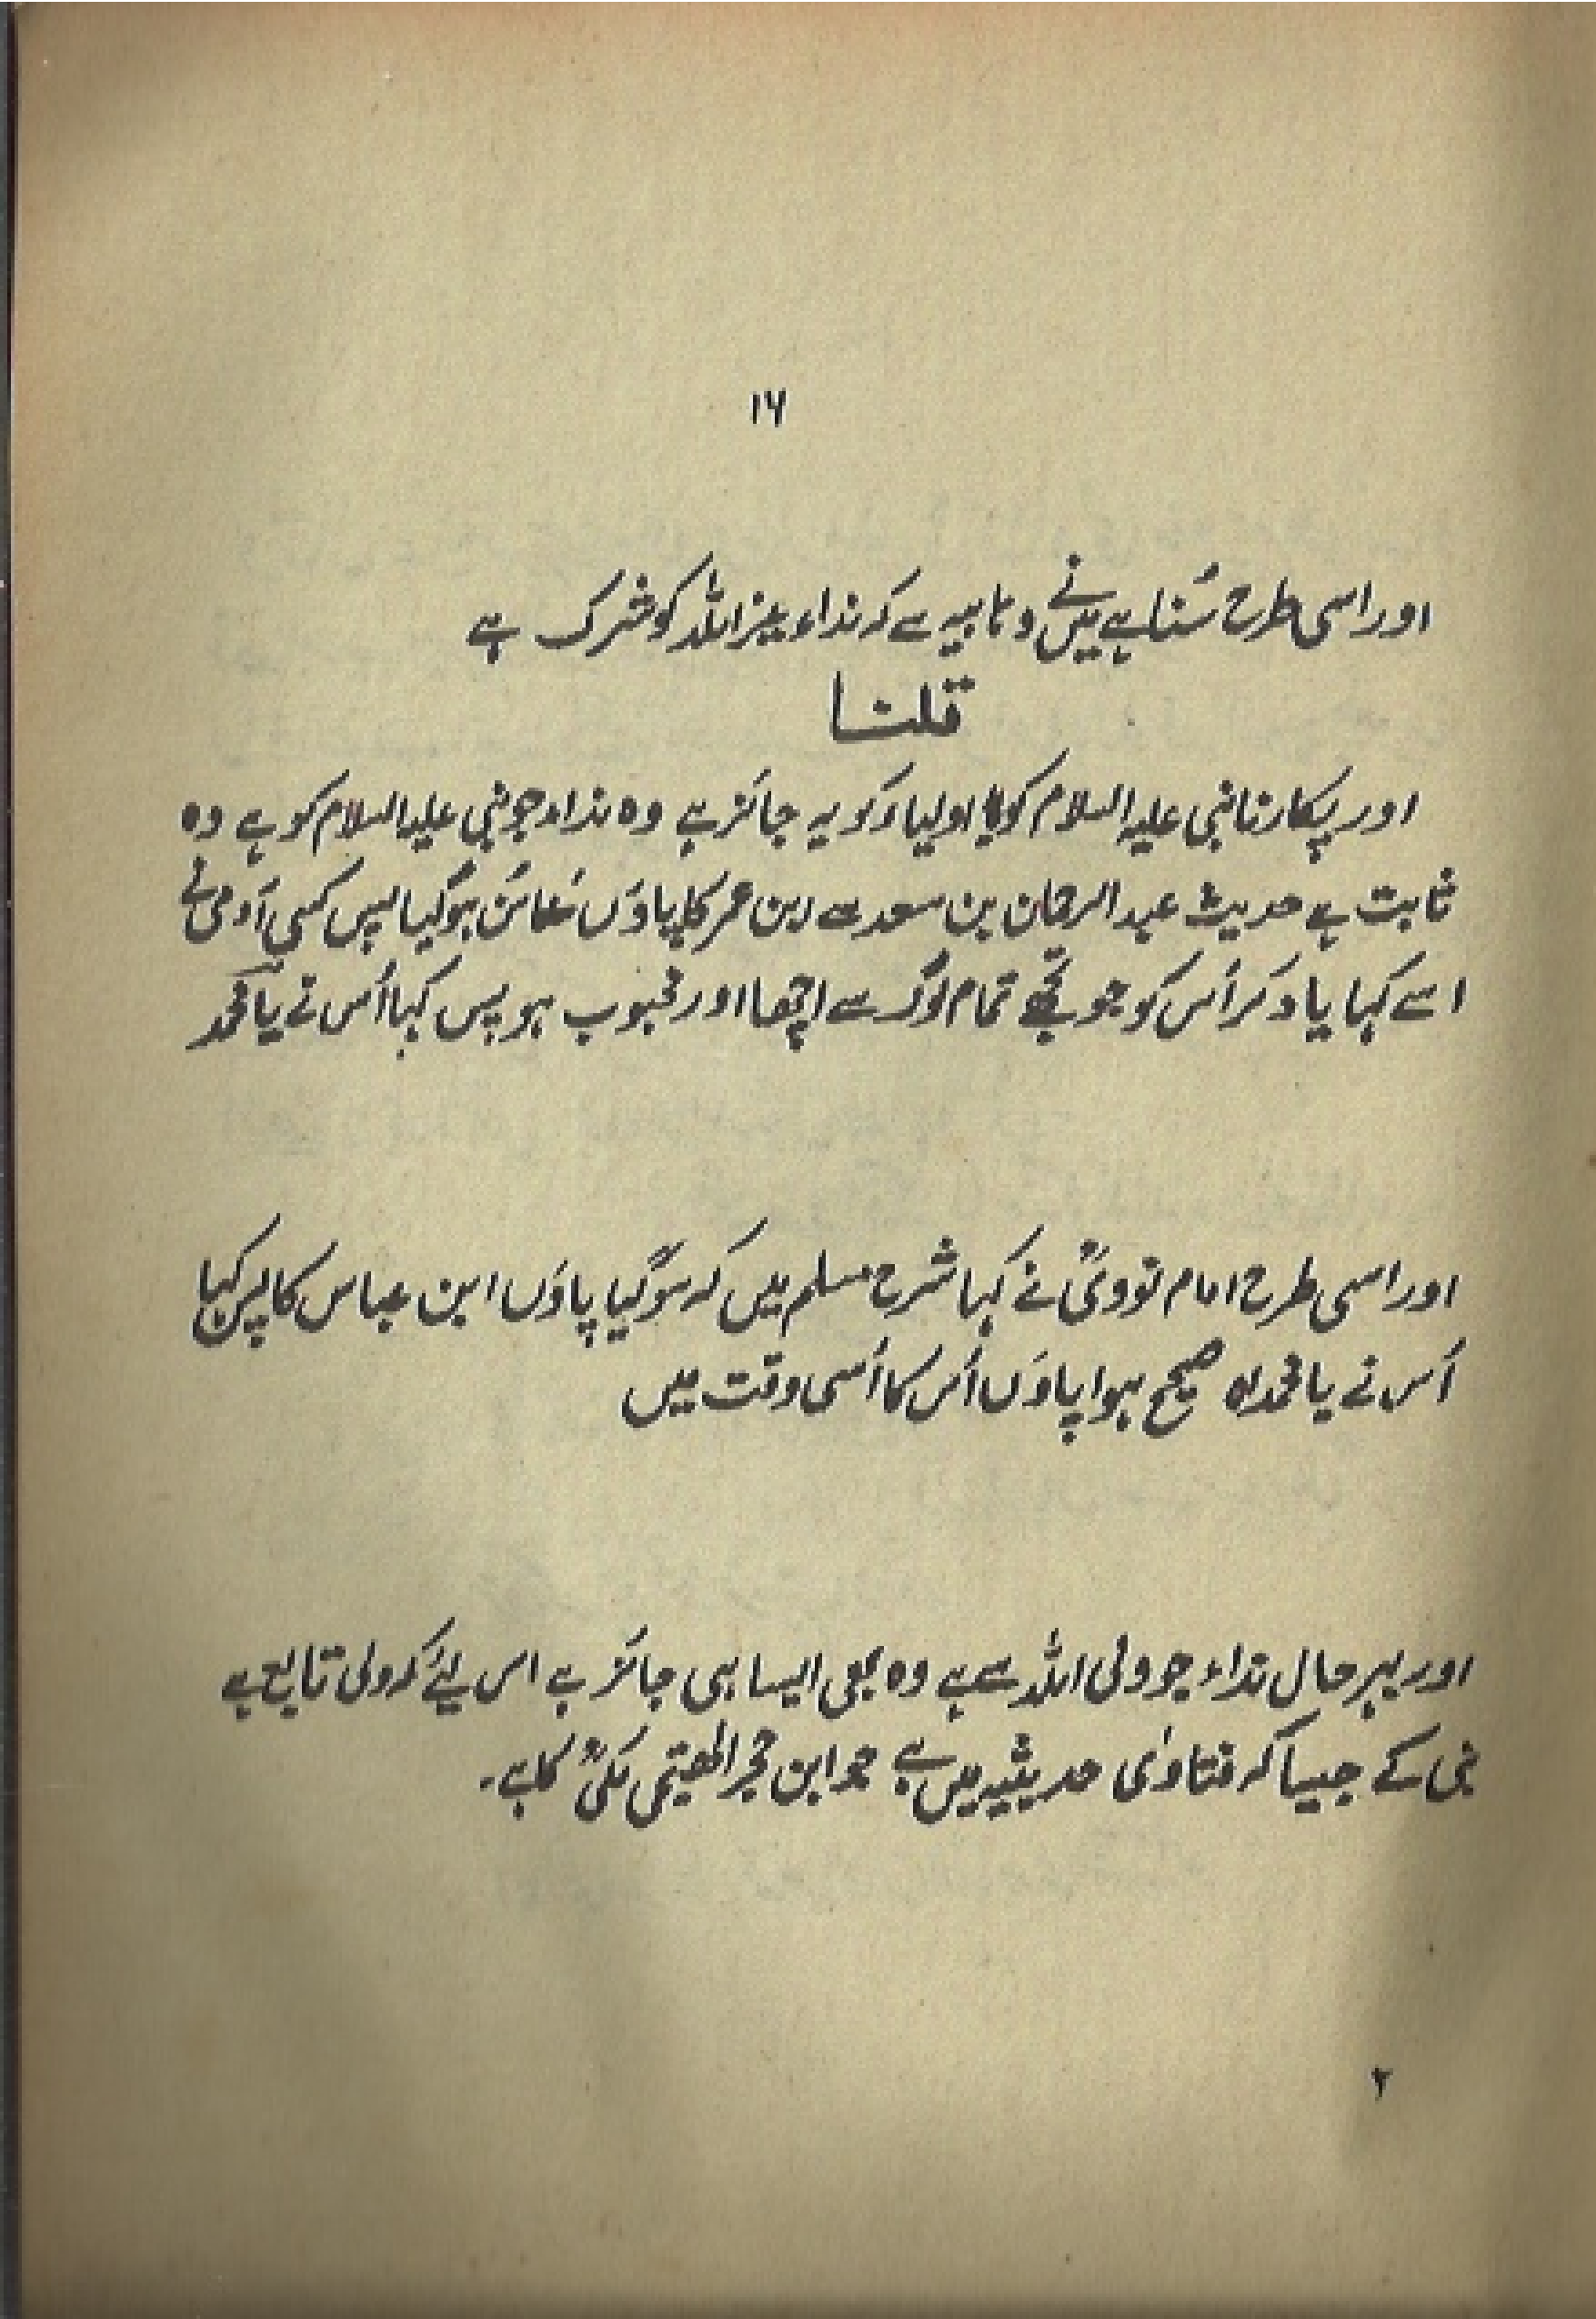 ۱۶
اور اسی طرح سُنا ہے میں نے وہابیہ سے کہ نداء غیر اللہ کو شرک ہے
قلنا
اور پکارنا نبی علیہ السلام کو یا اولیاء کو یہ جائز ہے وہ نداء جو نبی علیہ السلام کو ہے وہ
ثابت ہے حدیث عبد الرحمان بن سعد سے ابن عمر کا پاؤں ہوگیا پس کسی آدمی نے
اسے کہا یاد کر اُس کو جو تجھے تمام لوگ سے اچھا اور محبوب ہو پس کہا اُس نے یا محمد
اور اسی طرح امام نوویؒ نے کہا شرح مسلم میں کہ سوگیا پاؤں ابن عباس کا پس کہا
اُس نے یا محمداہ صحیح ہوا پاؤں اُس کا اُسی وقت میں
اور بہر حال نداء جو ولی اللہ سے ہے وہ بھی ایسا ہی جائز ہے اس لیئے کہ ولی تابع ہے
نبی کے جیسا کہ فتاوٰی حدیثیہ میں ہے جو ابن حجر الھیتمی مکیؒ کا ہے۔
۲